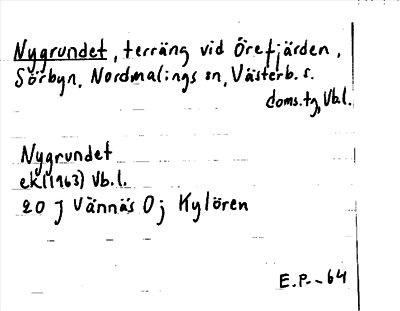 Nygrundet, terräng vid Örefjärden,
Sörbyn, Nordmalings sn, Västerb. s.
doms.tg, Vb.l.
Nygrundet
ek (1963) Vb.l.
20 J Vännäs 0j Kylören
E.P. - 64